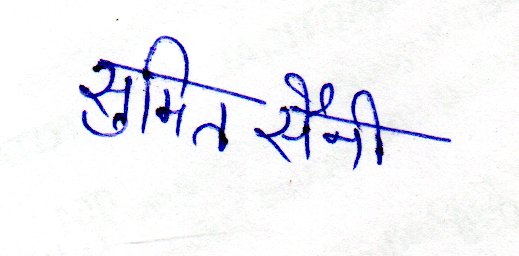 सुमित सैनी